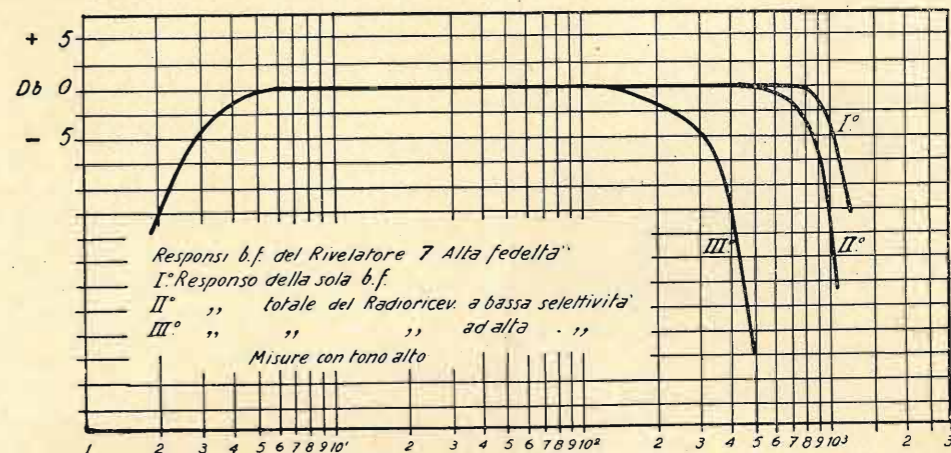 + 5
Db 0
− 5
Responsi b.f. del Rivelatore 7 Alta fedeltà"
I.° Responso della sola b.f.
II° ,, totale del Radioricev. a bassa selettività
III.° ,, ,, ,, ad alta . ,,
Misure con tono alto
I.°
II.°
III°
1 2 3 4 5 6 7 8 9 10¹ 2 3 4 5 6 7 8 9 10² 2 3 4 5 6 7 8 9 10³ 2 3